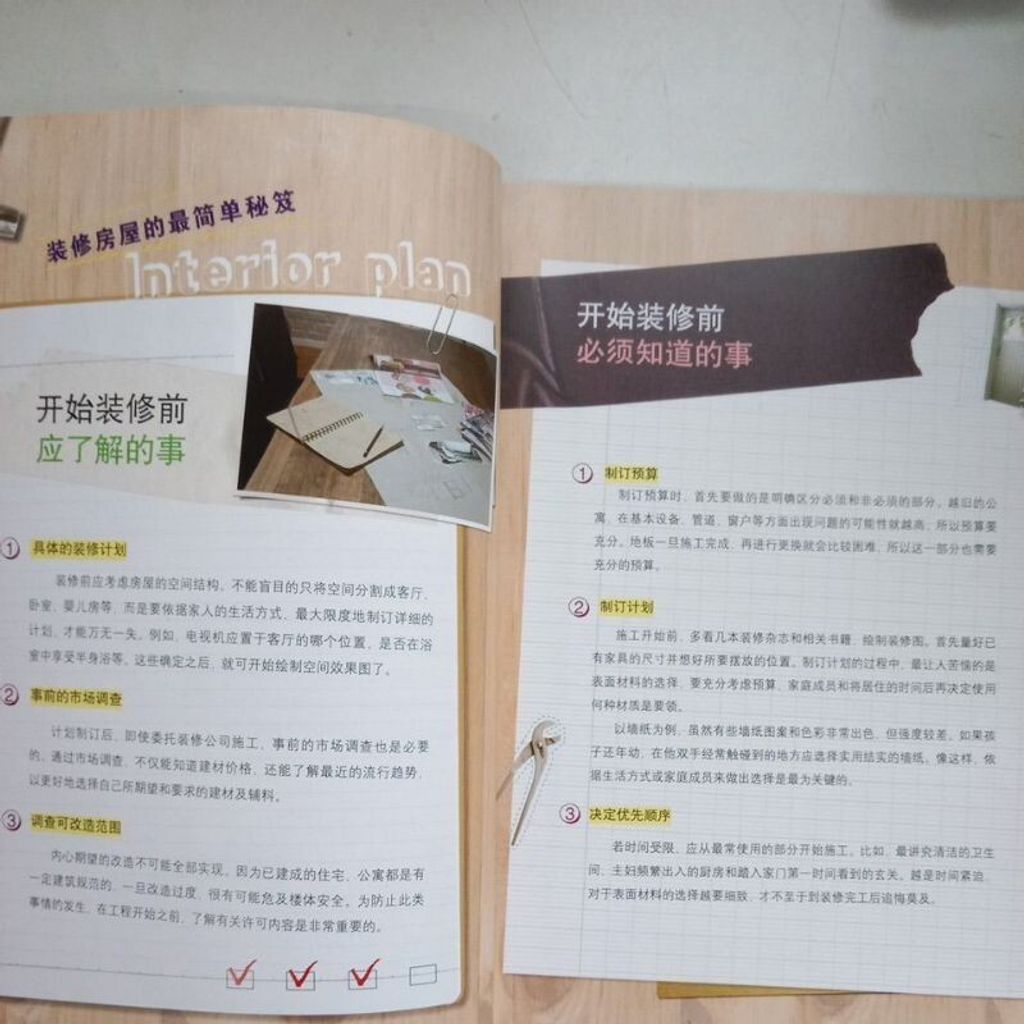 装修房屋的最简单秘笈
Interior plan
开始装修前
应了解的事
① 具体的装修计划
装修前应考虑房屋的空间结构。不能盲目的只将空间分割成客厅、
卧室、婴儿房等，而是要依据家人的生活方式，最大限度地制订详细的
计划，才能万无一失。例如，电视机应置于客厅的哪个位置，是否在浴
室中享受半身浴等，这些确定之后，就可开始绘制空间效果图了。
② 事前的市场调查
计划制订后，即使委托装修公司施工，事前的市场调查也是必要
的。通过市场调查，不仅能知道建材价格，还能了解最近的流行趋势，
以更好地选择自己所期望和要求的建材及辅料。
③ 调查可改造范围
内心期望的改造不可能全部实现。因为已建成的住宅、公寓都是有
一定建筑规范的，一旦改造过度，很有可能危及楼体安全。为防止此类
事情的发生，在工程开始之前，了解有关许可内容是非常重要的。
开始装修前
必须知道的事
① 制订预算
制订预算时，首先要做的是明确区分必须和非必须的部分。越旧的公
寓，在基本设备、管道、窗户等方面出现问题的可能性就越高，所以预算要
充分。地板一旦施工完成，再进行更换就会比较困难，所以这一部分也需要
充分的预算。
② 制订计划
施工开始前，多看几本装修杂志和相关书籍，绘制装修图。首先量好已
有家具的尺寸并想好所要摆放的位置。制订计划的过程中，最让人苦恼的是
表面材料的选择，要充分考虑预算、家庭成员和将居住的时间后再决定使用
何种材质是要领。
以墙纸为例，虽然有些墙纸图案和色彩非常出色，但强度较差。如果孩
子还年幼，在他双手经常触碰到的地方应选择实用结实的墙纸。像这样，依
据生活方式或家庭成员来做出选择是最为关键的。
③ 决定优先顺序
若时间受限，应从最常使用的部分开始施工。比如，最讲究清洁的卫生
间、主妇频繁出入的厨房和踏入家门第一时间看到的玄关。越是时间紧迫，
对于表面材料的选择越要细致，才不至于到装修完工后追悔莫及。